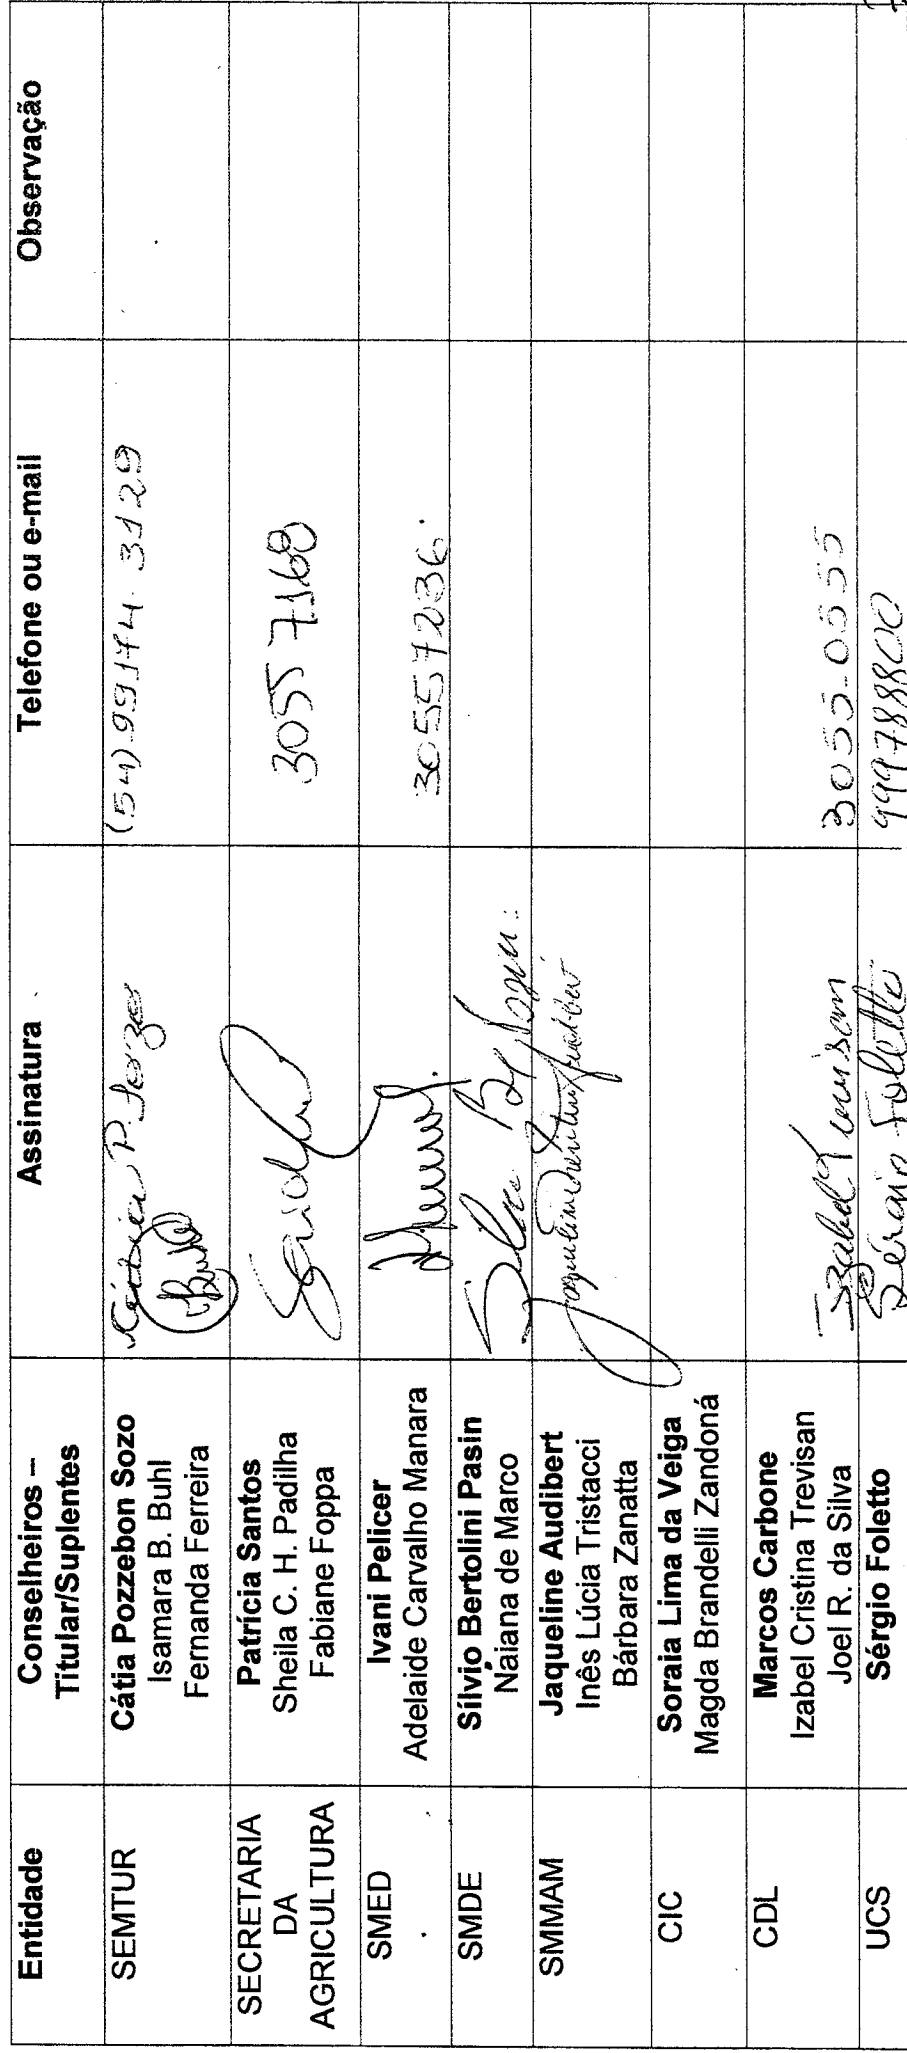 Entidade
Conselheiros –
Titular/Suplentes
Assinatura
Telefone ou e-mail
Observação
SEMTUR
Cátia Pozzebon Sozo
Isamara B. Buhl
Fernanda Ferreira
Cátia P. Sozo
Buhl
(54) 99174.3129
SECRETARIA
DA
AGRICULTURA
Patrícia Santos
Sheila C. H. Padilha
Fabiane Foppa
3055 7168
SMED
Ivani Pelicer
Adelaide Carvalho Manara
30557236.
SMDE
Sílvio Bertolini Pasin
Naiana de Marco
SMMAM
Jaqueline Audibert
Inês Lúcia Tristacci
Bárbara Zanatta
CIC
Soraia Lima da Veiga
Magda Brandelli Zandoná
CDL
Marcos Carbone
Izabel Cristina Trevisan
Joel R. da Silva
Izabel Trevisan
3055-0555
UCS
Sérgio Foletto
Sérgio Foletto
999788800